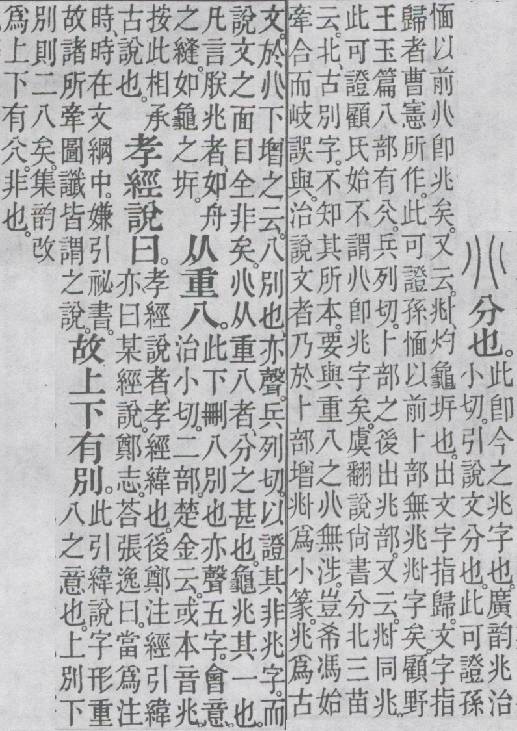 分也。此卽今之兆字也。廣韵兆治
小切。引說文分也。此可證孫
愐以前𠔁卽兆矣。又云。𠧞灼龜坼也。出文字指歸。文字指
歸者曹憲所作。此可證孫愐以前卜部無兆𠧞字矣。顧野
王玉篇八部有𠔁。兵列切。卜部之後出兆部。又云。𠧞同兆。
此可證顧氏始不謂𠔁卽兆字矣。虞翻說尙書分北三苗
云。北、古別字。不知其所本。要與重八之𠔁無涉。豈希馮始
牽合而岐誤與。治說文者乃於卜部增𠧞爲小篆。兆爲古
文。於𠔁下增之云。八別也。亦聲。兵列切。以證其非兆字。而
說文之面目全非矣。𠔁从重八者、分之甚也。龜兆其一也。
凡言朕兆者、如舟
之縫、如龜之坼。
从重八。此下刪八別也亦聲五字。會意。
治小切。二部。楚金云。或本音兆。
按此相承
古說也。
孝經說曰。孝經說者、孝經緯也。後鄭注經引緯
亦曰某經說。鄭志荅張逸曰。當爲注
時、時在文網中。嫌引祕書。
故諸所牽圖讖皆謂之說。
故上下有別。此引緯說字形重
八之意也。上別下
別則二八矣。集韵改
爲上下有𠔁。非也。